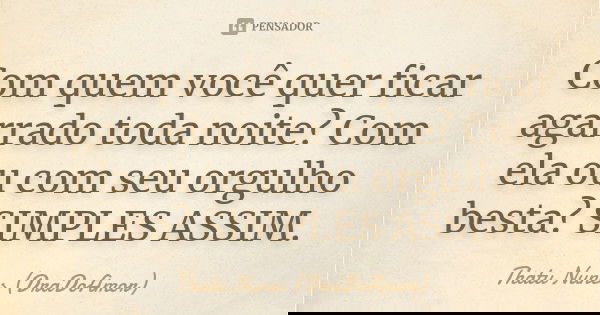 PENSADOR
Com quem você quer ficar
agarrado toda noite? Com
ela ou com seu orgulho
besta? SIMPLES ASSIM.
Thaty Nunes (DraDoAmor)